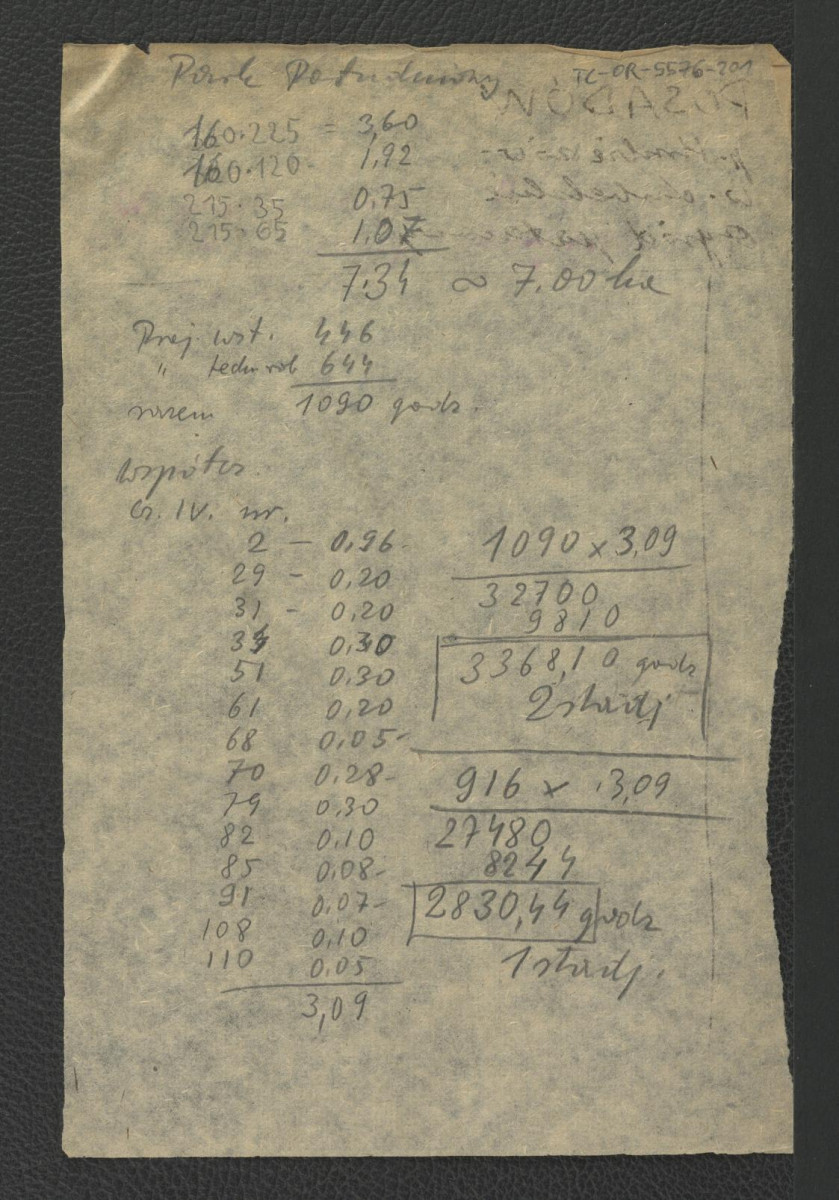 Park Południowy TL-OR-5576-201
160.225 = 3,60
160.120 - 1,92
215.35 0,75
215.65 1.07
7.34 ~ 7.00 ha
Proj. wst. 446
" techn rob 644
razem 1090 godz.
Współcz.
Cz. IV. nr.
2 - 0,96 -
29 - 0,20
31 - 0,20
34 0,30
51 0,30
61 0,20
68 0,05 -
70 0,28 -
79 0,30
82 0,10
85 0,08 -
91 0,07 -
108 0,10
110 0,05
3,09
1090 x 3,09
32700
9810
3368,10 godz
2 stadj
916 x 3,09
27480
8244
2830,44 godz
1 stadj.